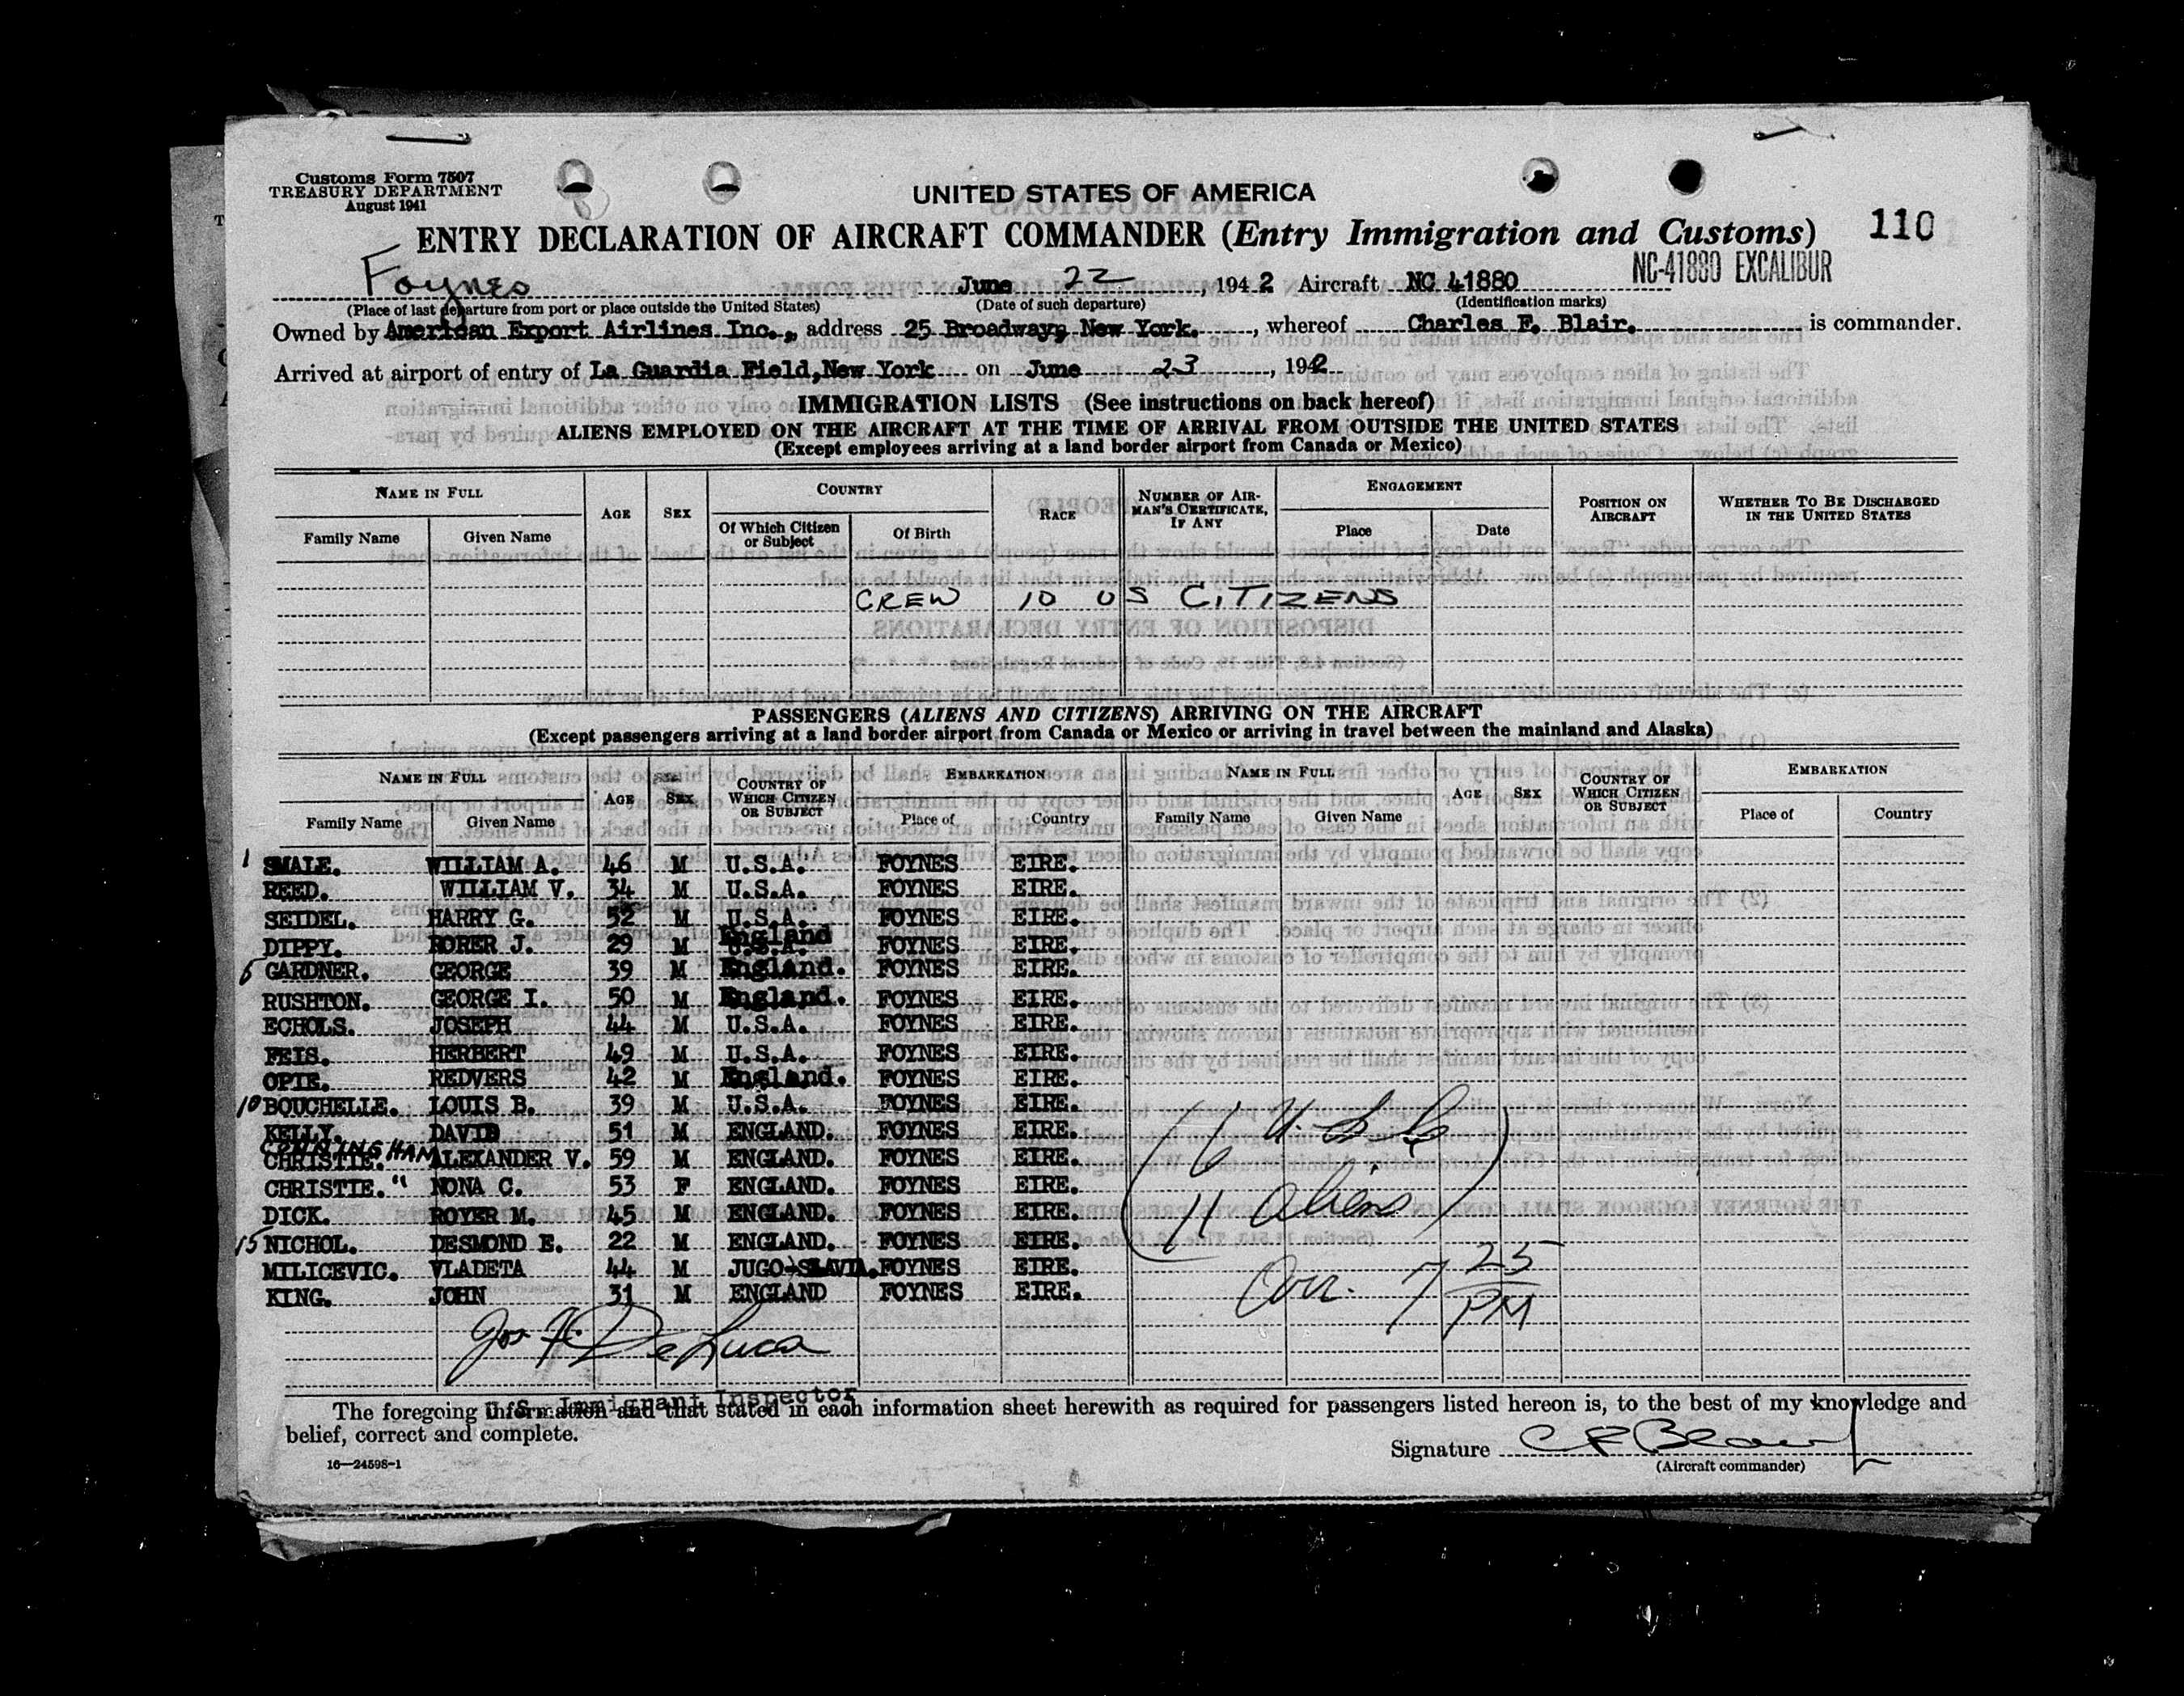 Customs Form 7507
TREASURY DEPARTMENT
August 1941
UNITED STATES OF AMERICA
ENTRY DECLARATION OF AIRCRAFT COMMANDER (Entry Immigration and Customs)
110
NC-41880 EXCALIBUR
Foynes June 22, 1942 Aircraft NC 41880
(Place of last departure from port or place outside the United States) (Date of such departure) (Identification marks)
Owned by American Export Airlines Inc., address 25 Broadway, New York., whereof Charles F. Blair. is commander.
Arrived at airport of entry of La Guardia Field, New York on June 23, 1942
IMMIGRATION LISTS (See instructions on back hereof)
ALIENS EMPLOYED ON THE AIRCRAFT AT THE TIME OF ARRIVAL FROM OUTSIDE THE UNITED STATES
(Except employees arriving at a land border airport from Canada or Mexico)
NAME IN FULL AGE SEX COUNTRY RACE NUMBER OF AIRMAN'S CERTIFICATE, IF ANY ENGAGEMENT POSITION ON AIRCRAFT WHETHER TO BE DISCHARGED IN THE UNITED STATES
Family Name Given Name Of Which Citizen or Subject Of Birth Place Date
CREW 10 US CITIZENS
PASSENGERS (ALIENS AND CITIZENS) ARRIVING ON THE AIRCRAFT
(Except passengers arriving at a land border airport from Canada or Mexico or arriving in travel between the mainland and Alaska)
NAME IN FULL AGE SEX COUNTRY OF WHICH CITIZEN OR SUBJECT EMBARKATION NAME IN FULL AGE SEX COUNTRY OF WHICH CITIZEN OR SUBJECT EMBARKATION
Family Name Given Name Place of Country Family Name Given Name Place of Country
1 SMALE. WILLIAM A. 46 M U.S.A. FOYNES EIRE.
REED. WILLIAM V. 34 M U.S.A. FOYNES EIRE.
SEIDEL. HARRY G. 52 M U.S.A. FOYNES EIRE.
DIPPY. RORER J. 29 M U.S.A. England FOYNES EIRE.
5 GARDNER. GEORGE 39 M England. FOYNES EIRE.
RUSHTON. GEORGE I. 50 M England. FOYNES EIRE.
ECHOLS. JOSEPH 44 M U.S.A. FOYNES EIRE.
FEIS. HERBERT 49 M U.S.A. FOYNES EIRE.
OPIE. REDVERS 42 M England. FOYNES EIRE.
10 BOUCHELLE. LOUIS B. 39 M U.S.A. FOYNES EIRE.
KELLY. DAVID 51 M ENGLAND. FOYNES EIRE.
CUNNINGHAM
CHRISTIE. ALEXANDER V. 59 M ENGLAND. FOYNES EIRE.
CHRISTIE. " NONA C. 53 F ENGLAND. FOYNES EIRE.
DICK. ROYER M. 45 M ENGLAND. FOYNES EIRE.
15 NICHOL. DESMOND E. 22 M ENGLAND. FOYNES EIRE.
MILICEVIC. VLADETA 44 M JUGO-SLAVIA. FOYNES EIRE.
KING. JOHN 31 M ENGLAND FOYNES EIRE.
(6 U.S.C.
11 Aliens)
Arr. 7 25 PM
Jos. F. De Luca
U.S. Immigrant Inspector
The foregoing information and that stated in each information sheet herewith as required for passengers listed hereon is, to the best of my knowledge and
belief, correct and complete.
Signature C F Blair
(Aircraft commander)
16—24598-1